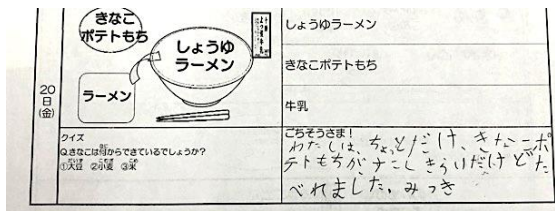 20日(金)
きなこ
ポテトもち
しょうゆ
ラーメン
ラーメン
しょうゆラーメン
きなこポテトもち
牛乳
クイズ
Q.きなこは何からできているでしょうか?
①大豆 ②小麦 ③米
ごちそうさま!
わたしは、ちょっとだけ、きなこポ
テトもちが、すこしきらいだけどた
べれました。みつき